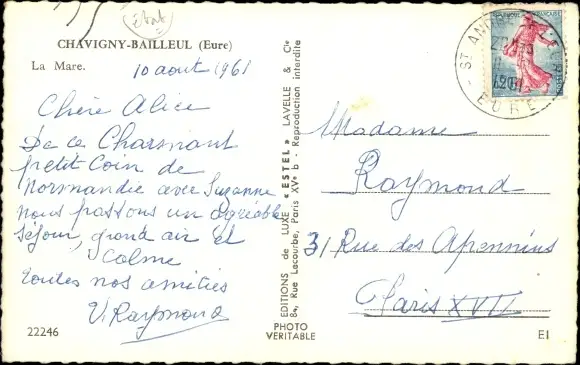 Etat
CHAVIGNY-BAILLEUL (Eure)
La Mare.
10 aout 1961
Chère Alice
De ce Charmant
petit Coin de
Normandie avec Suzanne
nous passons un agréable
séjour, grand air et
Calme
toutes nos amitiés
V. Raymond
22246
EDITIONS de LUXE "ESTEL" LAVELLE & Cie
84, Rue Lecourbe, Paris XVe b - Reproduction interdite
PHOTO
VERITABLE
ST ANDRE
EURE
Madame
Raymond
31 Rue des Apennins
Paris XVII
E1